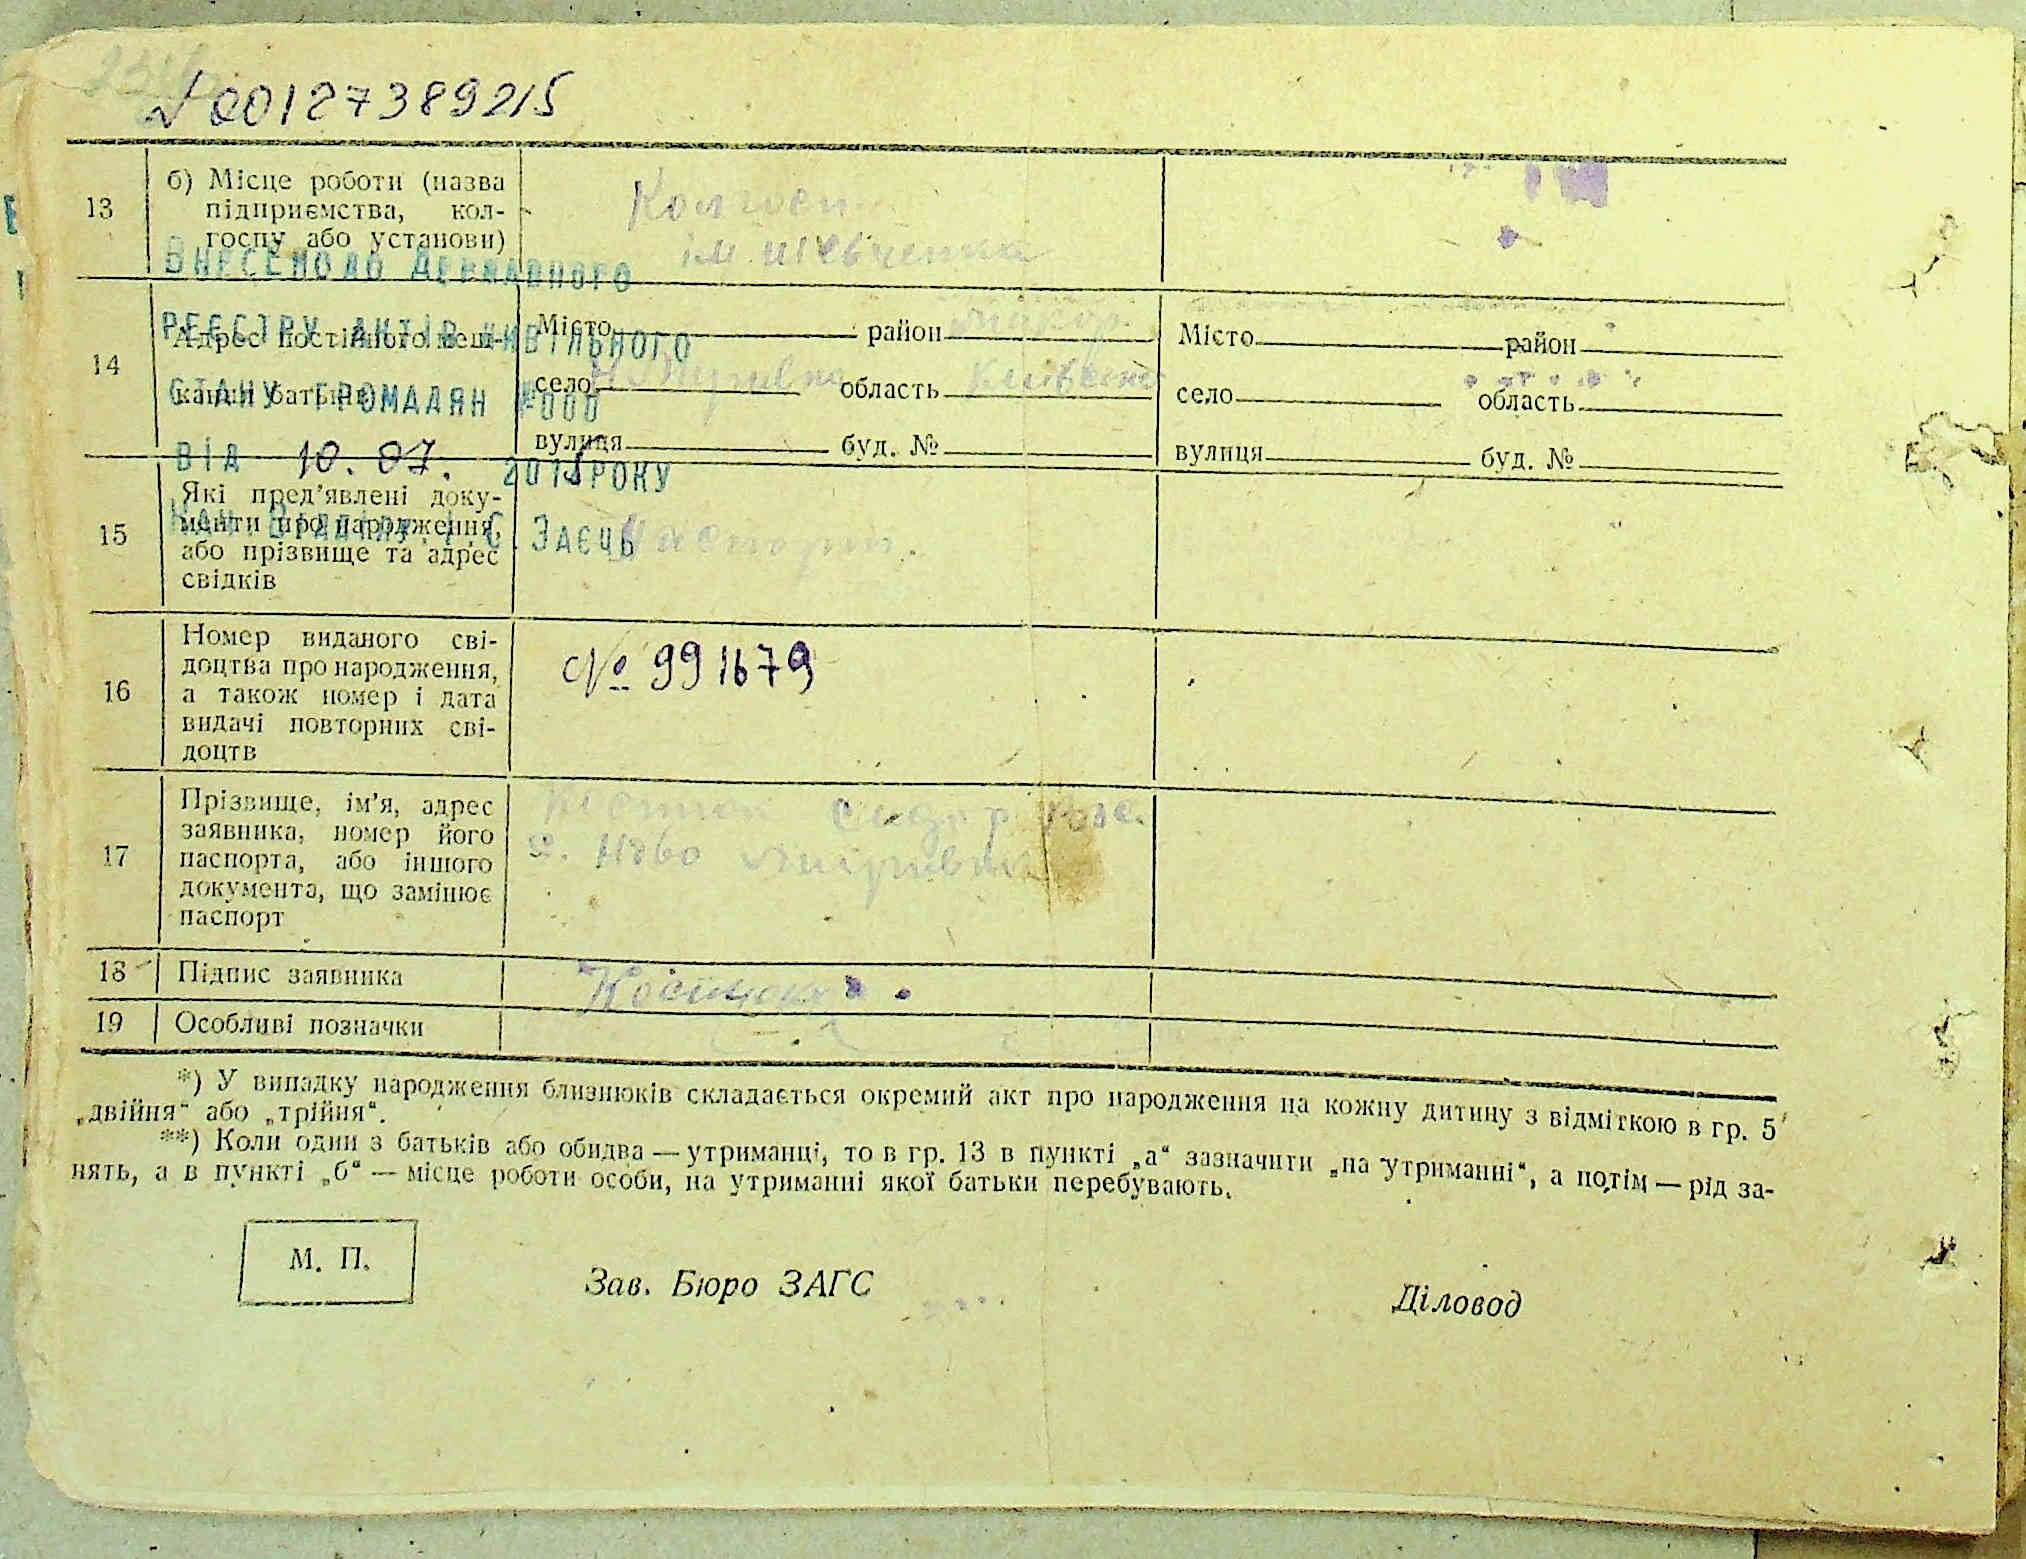 00127389215
13
б) Місце роботи (назва
підприємства, кол-
госпу або установи)
Колгосп
ім. Шевченка
Внесено до Державного
реєстру актів цивільного
стану громадян
від 10.07. 201 року
Нач. відділу І.С. Заєць
14
Адрес постійного меш-
кання батьків
Місто район Макар.
село область Київська
вулиця буд. №
Місто район
село область
вулиця буд. №
15
Які пред’явлені доку-
менти про народження,
або прізвище та адрес
свідків
Паспорт.
16
Номер виданого сві-
доцтва про народження,
а також номер і дата
видачі повторних сві-
доцтв
№ 991679
17
Прізвище, ім’я, адрес
заявника, номер його
паспорта, або іншого
документа, що замінює
паспорт
18
Підпис заявника
19
Особливі позначки
*) У випадку народження близнюків складається окремий акт про народження на кожну дитину з відміткою в гр. 5
„двійня“ або „трійня“.
**) Коли один з батьків або обидва — утриманці, то в гр. 13 в пункті „а“ зазначити „на утриманні“, а потім — рід за-
нять, а в пункті „б“ — місце роботи особи, на утриманні якої батьки перебувають.
М. П.
Зав. Бюро ЗАГС
Діловод